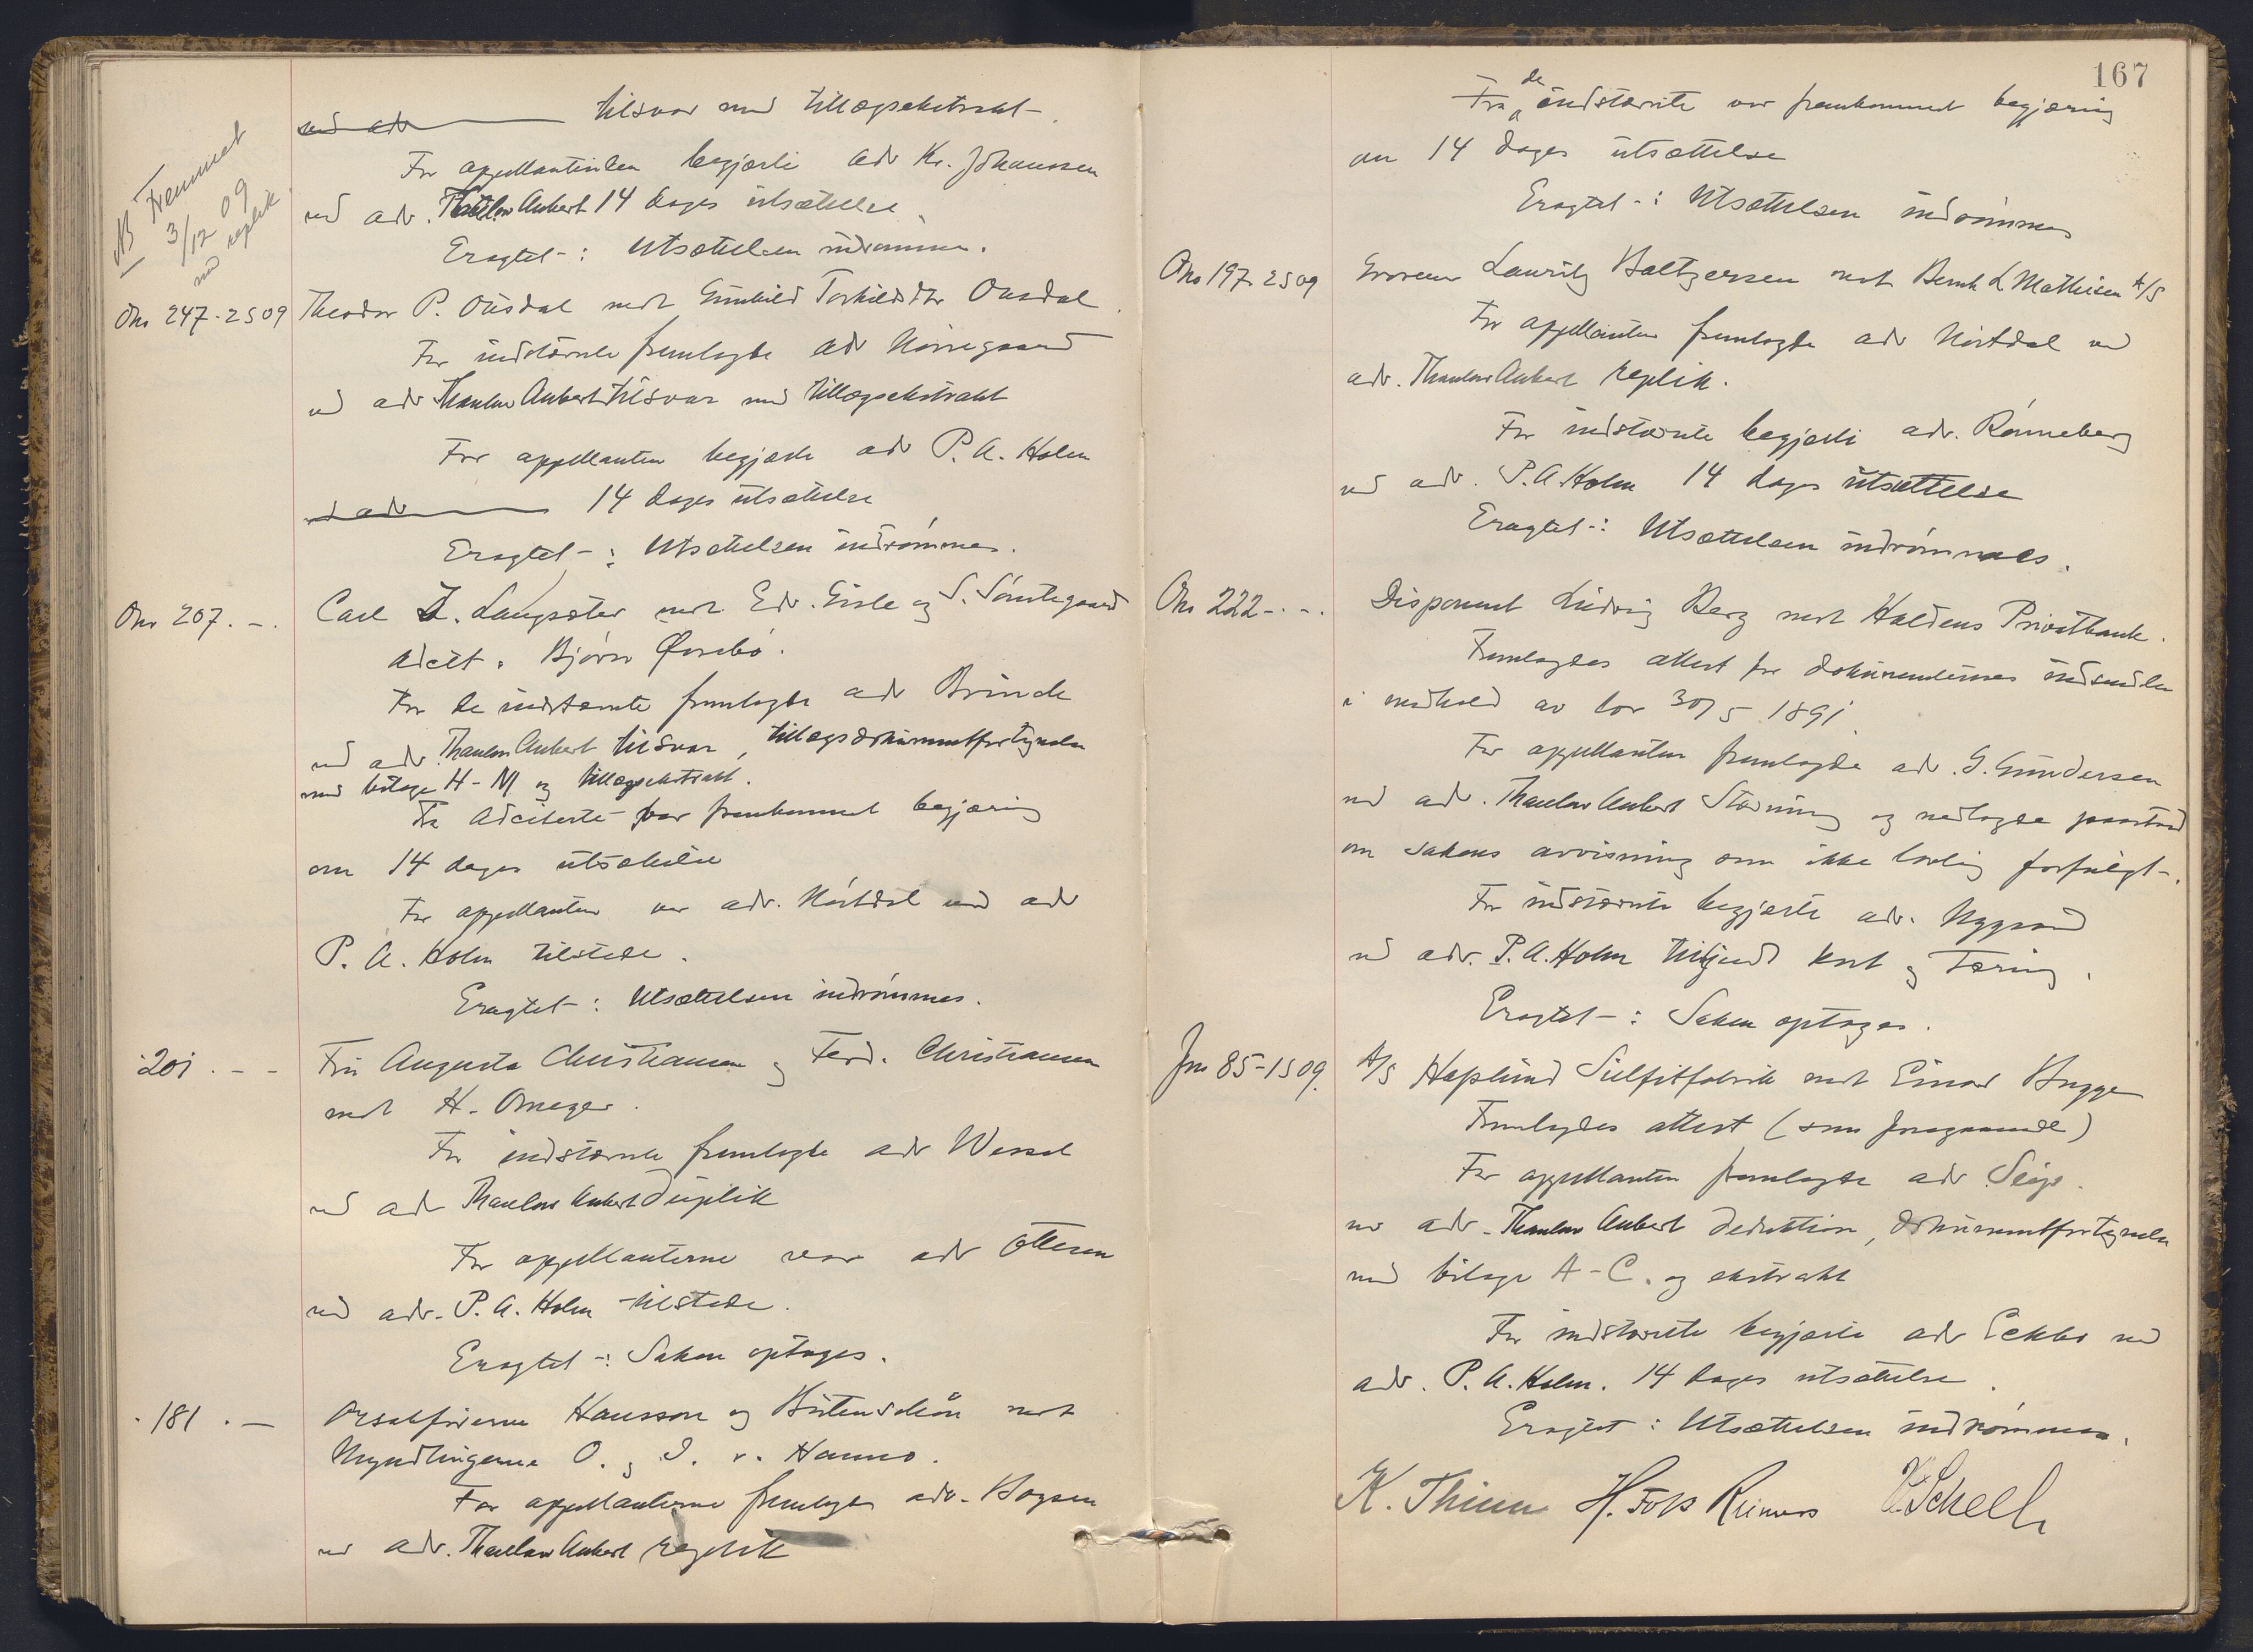 tilsvar med tillægsekstrakt.
For appellantinden begjærte adv Kr. Johanssen
ved adv. Thaulow Aubert 14 dages utsættelse.
Eragtet -: Utsættelsen indrømmes.
NB Fremmet
3/12 09
med replik
Ono 247-2S09 Theodor P. Ousdal mot Gunhild Torkildsdtr Ousdal.
For indstævnte fremlagde adv Nørregaard
ved adv Thaulow Aubert tilsvar med tillægsekstrakt
For appellanten begjærte adv P. A. Holm
ved adv 14 dages utsættelse
Eragtet -: Utsættelsen indrømmes.
Ono 207 . - . Carl Z. Langsæter mot Edv. Gisle og S. Sømtegaard
Adcit. Bjørn Øvrebø.
For de indstævnte fremlagde adv Brinck
ved adv. Thaulow Aubert tilsvar, tillægsdokumentfortegnelse
med bilage H - M og tillægsekstrakt.
Fra Adciterte var fremkommet begjæring
om 14 dages utsættelse
For appellanten var adv. Nørtdal ved adv
P. A. Holm tilstede.
Eragtet -: Utsættelsen indrømmes.
201 . - - Fru Augusta Christiansen og Ferd. Christiansen
mot H. Omeger.
For indstævnte fremlagde adv Wessel
ved adv Thaulow Aubert Duplik
For appellanterne var adv Ottesen
ved adv. P. A. Holm tilstede.
Eragtet -: Saken optages.
181 . - Orsakførerne Hansson og Butenschøn mot
Myndlingerne O. og I. v. Hanno.
For appellanterne fremlagde adv. Boysen
ved adv. Thaulow Aubert replik
167
Fra de indstævnte var fremkommet begjæring
om 14 dages utsættelse
Eragtet -: Utsættelsen indrømmes
Ono 197-2S09 Lauritz Baltzersen mot Bernh. L Mathisen A/S
For appellanten fremlagde adv Nørtdal ved
adv. Thaulow Aubert replik.
For indstævnte begjærte adv. Rønneberg
ved adv. P.A. Holm 14 dages utsættelse
Eragtet -: Utsættelsen indrømmes.
Ono 222 - . - . Disponent Ludvig Berg mot Haldens Privatbank.
Fremlagdes attest for dokumenternes indsendelse
i medhold av lov 30/5 1891.
For appellanten fremlagde adv. G. Gundersen
ved adv. Thaulow Aubert Stævning og nedlagde paastand
om sakens avvisning som ikke lovlig forfulgt.
For indstævnte begjærte adv. Nygaard
ved adv. P. A. Holm tilkjendt kost og tæring.
Eragtet -: Saken optages.
Jno 85-1S09. A/S Haplund Sulfitfabrik mot Einar Bugge
Fremlagdes attest (som foregaaende)
For appellanten fremlagde adv Seip.
ved adv. Thaulow Aubert Deduktion, dokumentfortegnelse
med bilage A - C. og ekstrakt
For indstævnte begjærte adv Eckbo ved
adv. P. A. Holm. 14 dages utsættelse.
Eragtet : Utsættelsen indrømmes.
K. Thinn H. Foss Reimers V. Schell